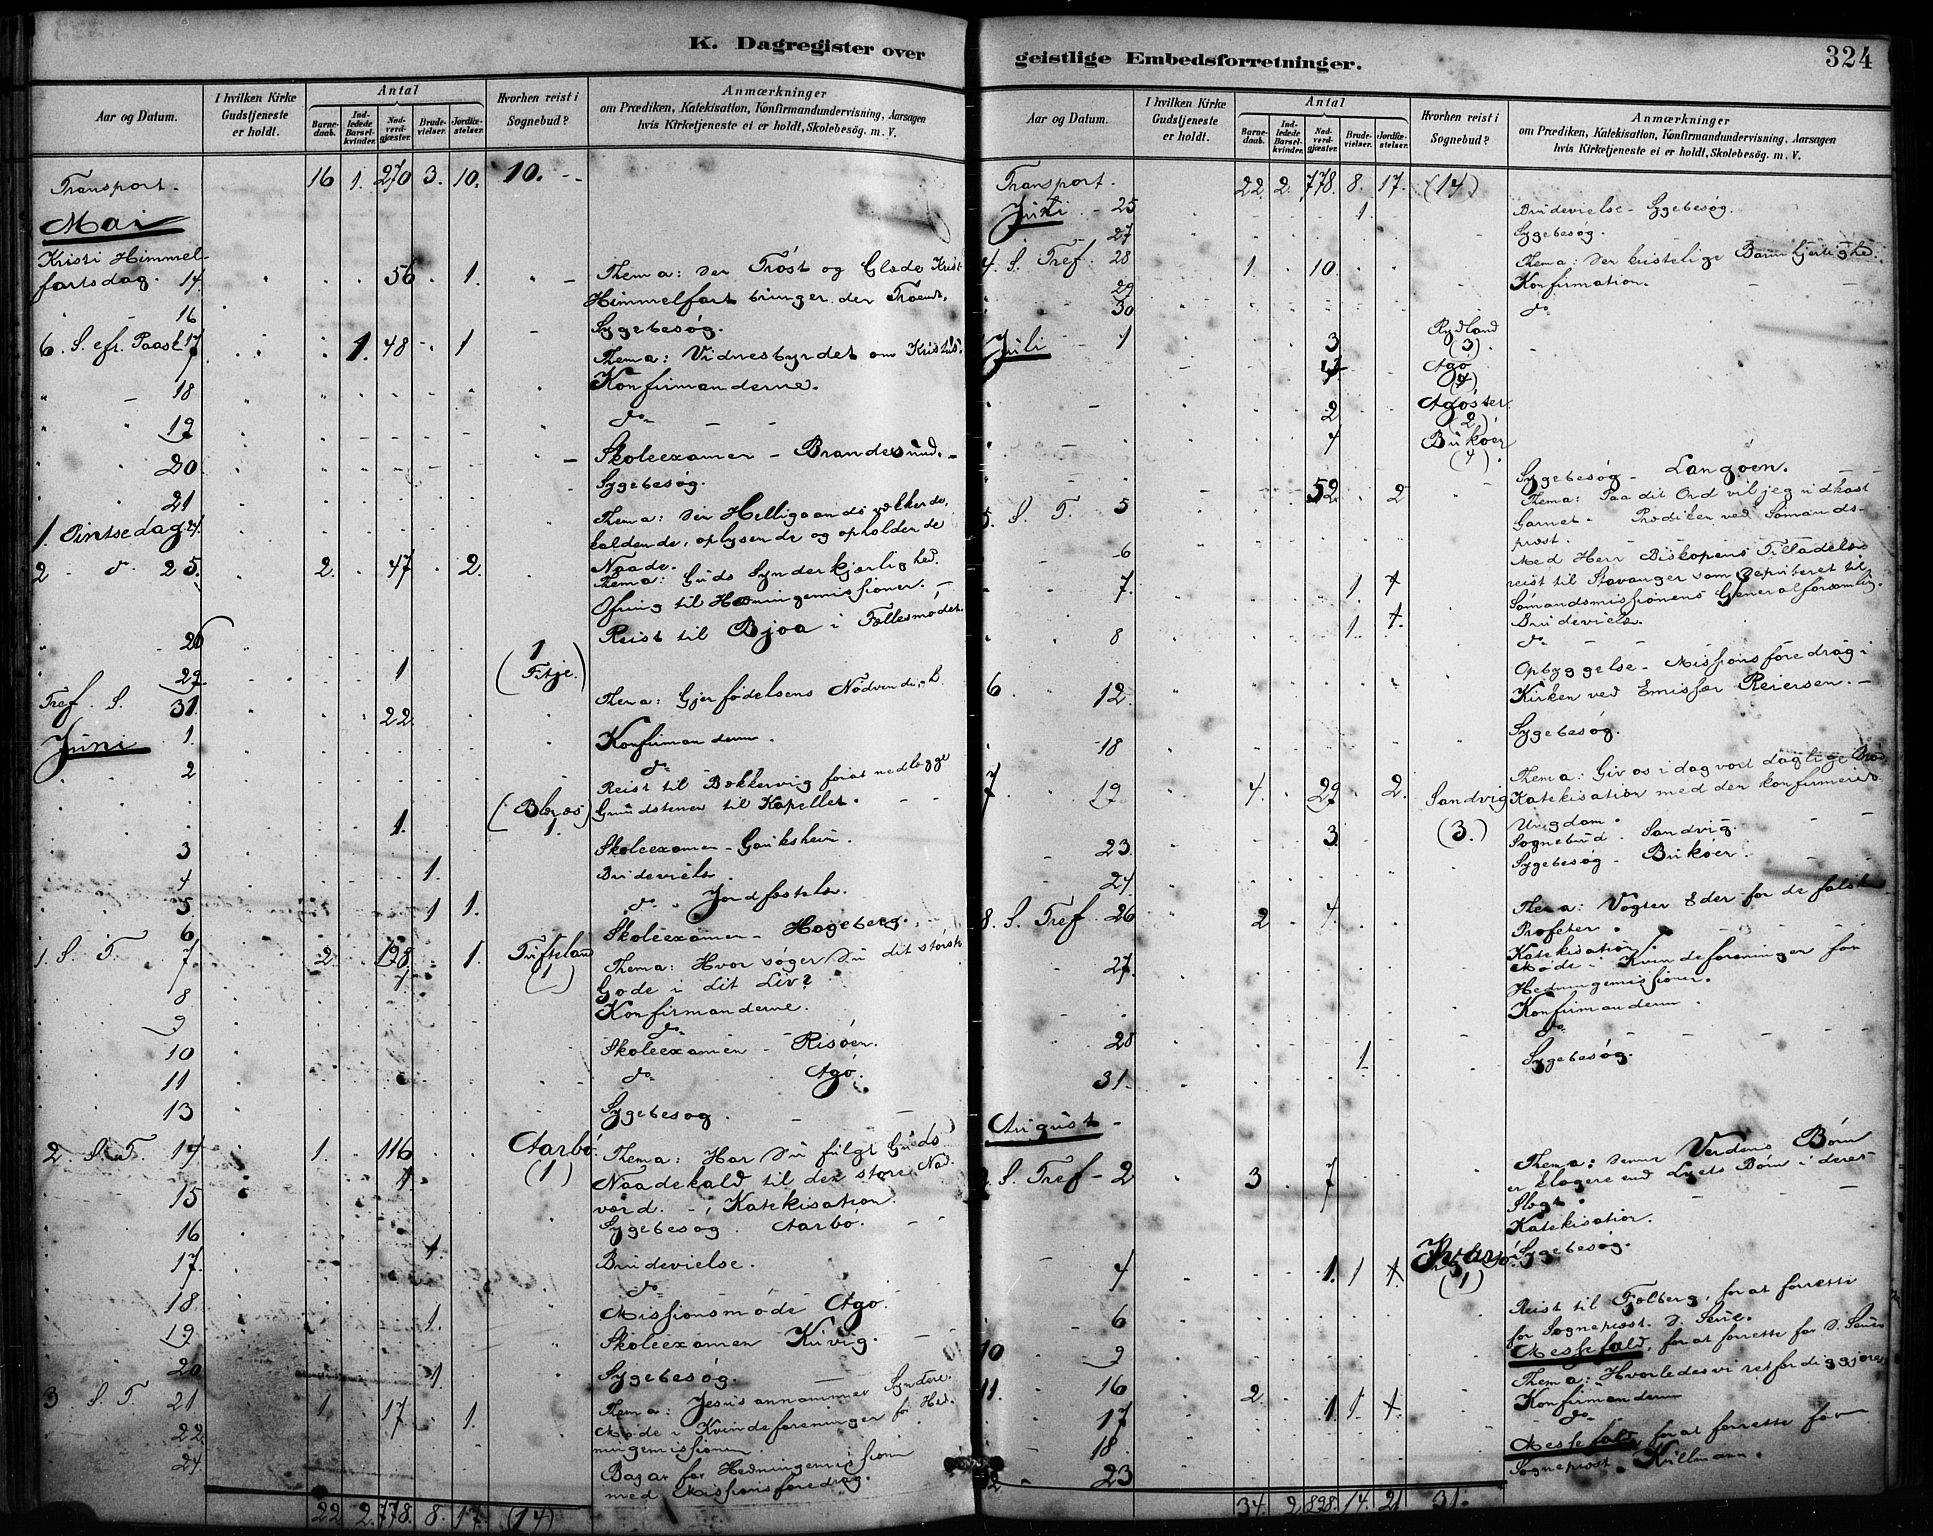 K. Dagregister over
Aar og Datum.
I hvilken Kirke
Gudstjeneste
er holdt.
Antal
Barne-
daab.
Ind-
ledede
Barsel-
kvinder.
Nad-
verd-
gjæster.
Brude-
vielser.
Jordfæ-
stelser.
Hvorhen reist i
Sognebud?
Anmærkninger
om Prædiken, Katekisation, Konfirmandundervisning, Aarsagen
hvis Kirketjeneste ei er holdt, Skolebesøg. m. V.
Transport. 16 1. 270 3. 10. 10.
Mai
Kristi Himmel-
fartsdag. 14. 56 1 Thema: Den Trøst og Glæde Krist
Himmelfart bringer den Troende.
16 Sygebesøg.
6. S. efr. Paask 17 1. 48 1 Thema: Vidnesbyrdet om Kristus.
Konfirmanderne.
18 do
19 Skoleexamen - Brandesund.
20 Sygebesøg.
21
1. Pintsedag 24. Thema: Den Helligaands vækkende,
kaldende, oplysende og opholdende
Naade.
2 - d. 25. 2. 47 2. Thema: Guds Synderkjærlighed.
Ofring til Hedningemissionen.
Reist til Bjoa i Fællesmødet.
26
29. 1 1 (Fitje.)
Tref. S. 31. 22. Thema: Gjenfødelsens Nødvendigh.
Juni 1. Konfirmanderne.
2 do
Reist til Bækkervig forat nedlægge
Grundstenen til Kapellet.
1.
3 Skoleexamen -
4 1. Brudevielse.
5. 1 1. do Jordfæstelse.
6 Skoleexamen - Hageberg.
1. S. T. 7. 2. 198 1. Tufteland (1) Thema: Hvor søger Du dit største
Gode i dit Liv?
8 Konfirmanderne.
9 do
10 Skoleexamen - Risøen.
11 do Agø.
13 Sygebesøg.
2 S. T. 14 1. 116 Aarbø. (1) Thema: Har Du fulgt Guds
Naadekald til den store Nad-
verd. - Katekisation.
15 Sygebesøg Aarbø.
16
17. 1. Brudevielse.
do
18. 1. Missionsmøde Agø.
19 Skoleexamen Kivig.
20 1. Sygebesøg.
3 S. T. 21 1. 17. 1. Thema: Jesus annammer Syndere.
22. Møde i Kvindeforeninger for Hed-
ningemissionen.
24. Bazar for Hedningemissionen
med Missionsforedrag.
22 2. 778. 8. 17. (14)
geistlige Embedsforretninger.
324
Aar og Datum.
I hvilken Kirke
Gudstjeneste
er holdt.
Antal
Barne-
daab.
Ind-
ledede
Barsel-
kvinder.
Nad-
verd-
gjæster.
Brude-
vielser.
Jordfæ-
stelser.
Hvorhen reist i
Sognebud?
Anmærkninger
om Prædiken, Katekisation, Konfirmandundervisning, Aarsagen
hvis Kirketjeneste ei er holdt, Skolebesøg. m. V.
Transport. 22. 2. 778. 8. 17. (14)
Juni - 25 1. Brudevielse - Sygebesøg.
27 Sygebesøg.
4. S. Tref. 28 1. 10. Thema: Den kristelige Barmhjertighed.
29 Konfirmation.
30 do
Juli 1 3 Rydland (3)
Agø (4)
2 Agøster (2)
4 Bukøer (4)
Sygebesøg - Langøen.
5. S. T. 5 52 2 Thema: Paa dit Ord vil jeg udkast
Garnet. Prædiken ved Sømands-
præst.
6 Med Herr Biskopens Tilladelse
reist til Stavanger som Deputeret til
Sømandsmissionens Generalforsamling.
7. 1 + Brudevielse.
8 1 + do
Opbyggelse - Missionsforedrag i
6 12. Kirken ved Emissær Reiersen.
18 Sygebesøg.
7 19 4. 29 2. Thema: Giv os i dag vort daglige Brød.
Katekisation med den konfirmerede
Ungdom.
23. 3. Sandvig (3.) Sognebud. Sandvig.
24 Sygebesøg - Bukøer.
8. S. Tref. 26 2 4. Thema: Vogter Eder for de falske
Profeter.
Katekisation.
27. Møde i Kvindeforeninger for
Hedningemissionen.
Konfirmanderne
28 do
31. 1. Sygebesøg.
August
9. S. Tref - 2 3 7 Thema: Denne Verdens Børn
er klogere end Lysets Børn i deres
Slægt.
Katekisation.
4 1. 1 +. (1) Sygebesøg.
6 Reist til Fjelberg, for at forrette
for Sogneprest. D. Serine.
10 9 Messefald, for at forrette for
11. 16 2. Thema: Hvorledes vi retfærdiggjøres
17 1. 1. +. Konfirmanderne
18. do
12 23 Messefald, for at forrette for
Sogneprest. Killmann.
34. 2 898. 14. 21 31.